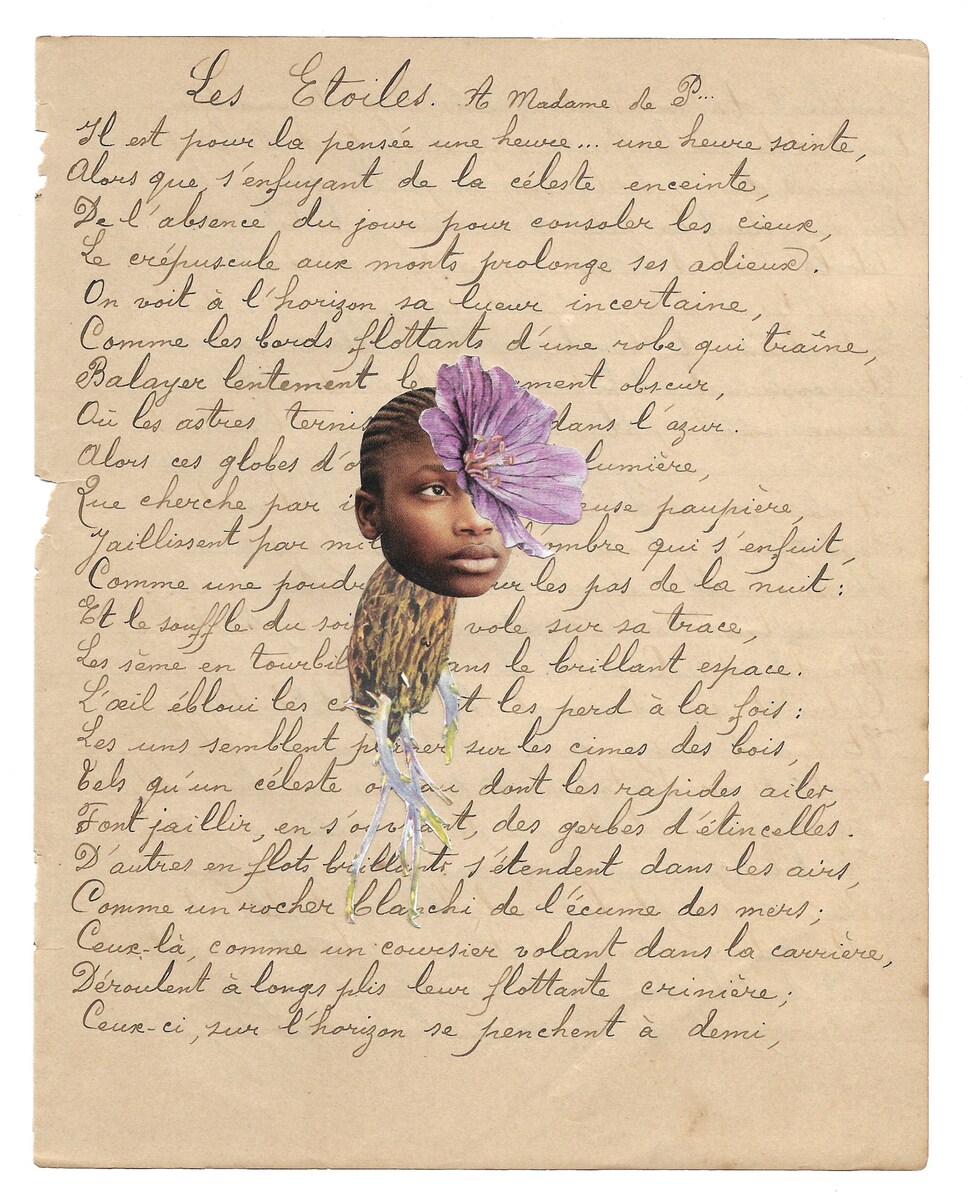 Les Etoiles. A Madame de P...
Il est pour la pensée une heure... une heure sainte,
Alors que, s'enfuyant de la céleste enceinte,
De l'absence du jour pour consoler les cieux,
Le crépuscule aux monts prolonge ses adieux.
On voit à l'horizon sa lueur incertaine,
Comme les bords flottants d'une robe qui traîne,
Balayer lentement le ment obscur,
Où les astres ternis dans l'azur.
Alors ces globes d'o lumière,
Que cherche par i euse paupière,
Jaillissent par mil l'ombre qui s'enfuit,
Comme une poudr sur les pas de la nuit:
Et le souffle du soi vole sur sa trace,
Les sème en tourbil ans le brillant espace.
L'œil ébloui les c et les perd à la fois:
Les uns semblent planer sur les cimes des bois,
Tels qu'un céleste oiseau dont les rapides ailer
Font jaillir, en s'ouvrant, des gerbes d'étincelles.
D'autres en flots brillants s'étendent dans les airs,
Comme un rocher blanchi de l'écume des mers;
Ceux-là, comme un coursier volant dans la carrière,
Déroulent à longs plis leur flottante crinière;
Ceux-ci, sur l'horizon se penchent à demi,